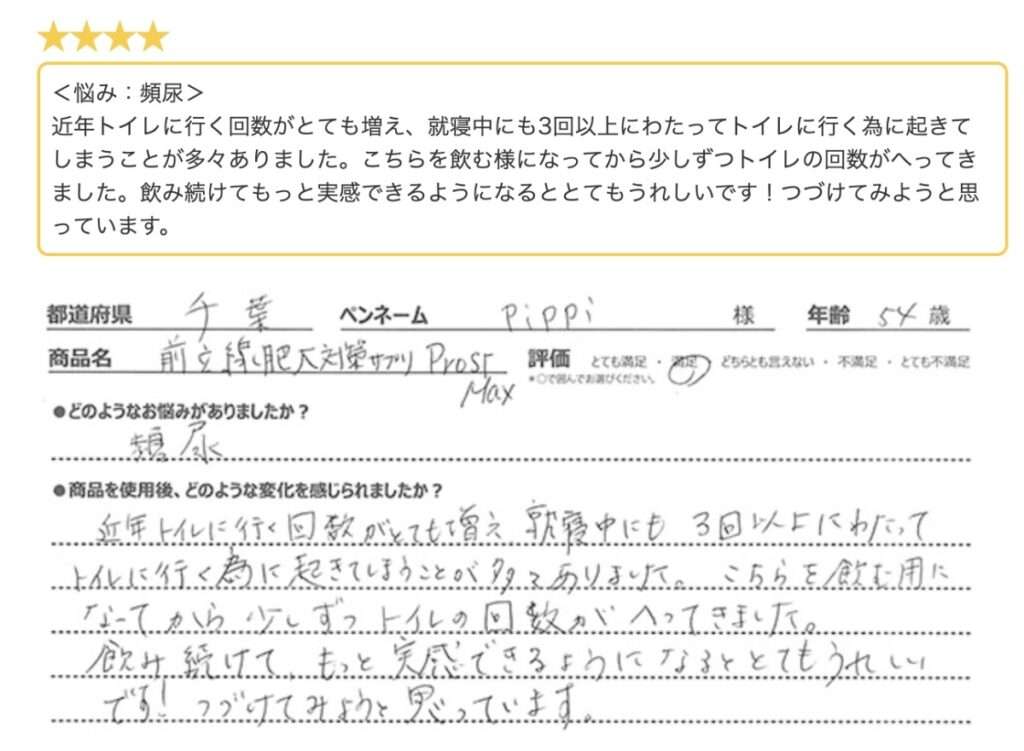 ★★★★
＜悩み：頻尿＞
近年トイレに行く回数がとても増え、就寝中にも3回以上にわたってトイレに行く為に起きて
しまうことが多々ありました。こちらを飲む様になってから少しずつトイレの回数がへってき
ました。飲み続けてもっと実感できるようになるととてもうれしいです！つづけてみようと思
っています。
都道府県 千葉 ペンネーム Pippi 様 年齢 54 歳
商品名 前立線肥大対策サプリ Prost 評価 とても満足・満足・どちらとも言えない・不満足・とても不満足
Max *○で囲んでお選びください。
●どのようなお悩みがありましたか？
頻尿
●商品を使用後、どのような変化を感じられましたか？
近年トイレに行く回数がとても増え 就寝中にも 3回以上にわたって
トイレに行く為に起きてしまうことが多々ありました。こちらを飲む用に
なってから少しずつトイレの回数がへってきました。
飲み続けて、もっと実感できるようになるととてもうれしい
です！つづけてみようと思っています。